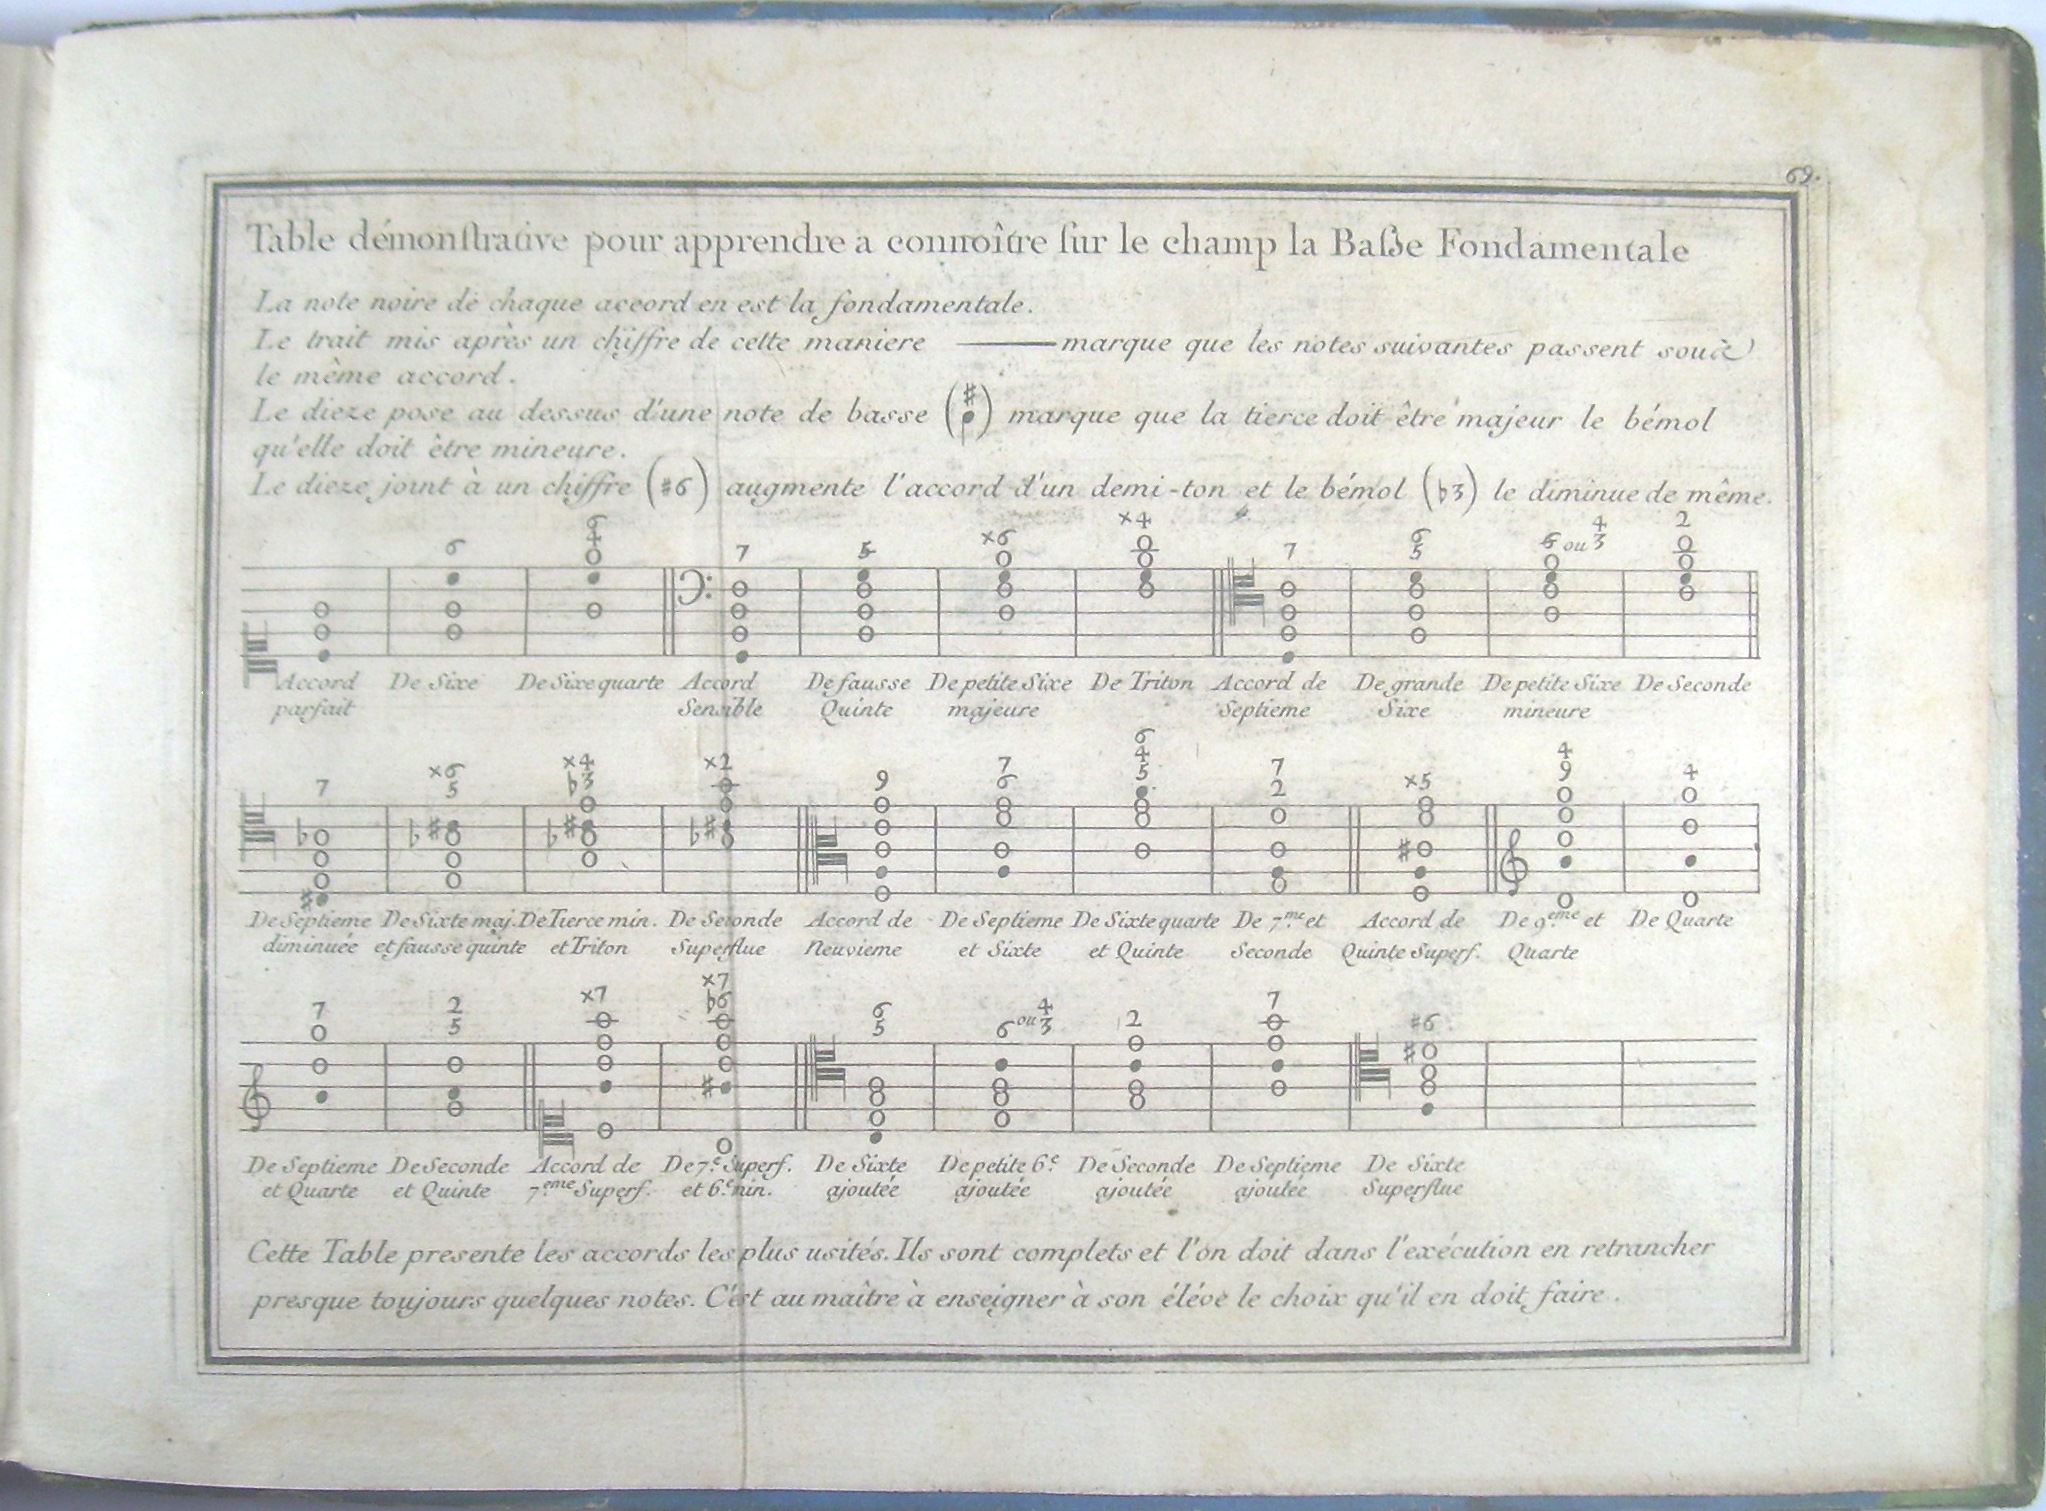 69.
Table démonſtrative pour apprendre a connoître ſur le champ la Baſſe Fondamentale
La note noire de chaque accord en est la fondamentale.
Le trait mis après un chiffre de cette maniere ——— marque que les notes suivantes passent sous
le même accord.
Le dieze pose au dessus d'une note de basse (♯) marque que la tierce doit être majeur le bémol
qu'elle doit être mineure.
Le dieze joint à un chiffre (♯6) augmente l'accord d'un demi-ton et le bémol (♭3) le diminue de même.
6 6 4 7 5 ×6 ×4 7 6 5 6 ou 4 3 2
Accord parfait De Sixe De Sixe quarte Accord Sensible De fausse Quinte De petite Sixe majeure De Triton Accord de Septieme De grande Sixe De petite Sixe mineure De Seconde
7 ×6 5 ×4 ♭3 ×2 9 7 6 6 4 5 7 2 ×5 4 9 4
De Septieme diminuée De Sixte maj. et fausse quinte De Tierce min. et Triton De Seconde Superflue Accord de Neuvieme De Septieme et Sixte De Sixte quarte et Quinte De 7.me et Seconde Accord de Quinte Superf. De 9.eme et Quarte De Quarte
7 2 5 ×7 ×7 ♭6 6 5 6 ou 4 3 2 7 ♯6
De Septieme et Quarte De Seconde et Quinte Accord de 7.eme Superf. De 7.e Superf. et 6.e min. De Sixte ajoutée De petite 6.e ajoutée De Seconde ajoutée De Septieme ajoutée De Sixte Superflue
Cette Table presente les accords les plus usités. Ils sont complets et l'on doit dans l'exécution en retrancher
presque toujours quelques notes. C'est au maître à enseigner à son éléve le choix qu'il en doit faire.